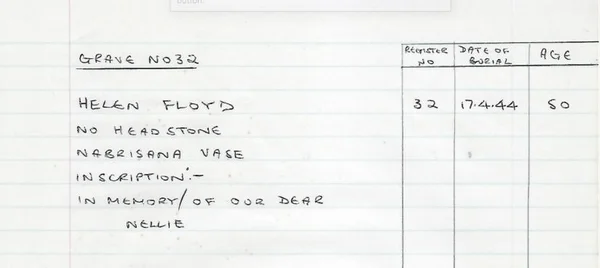 button.
GRAVE NO 32
REGISTER NO
DATE OF BURIAL
AGE
HELEN FLOYD 32 17.4.44 50
NO HEADSTONE
NABRISANA VASE
INSCRIPTION:-
IN MEMORY / OF OUR DEAR
NELLIE